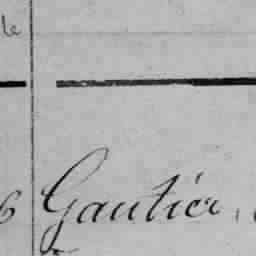 le
6 Gautier,